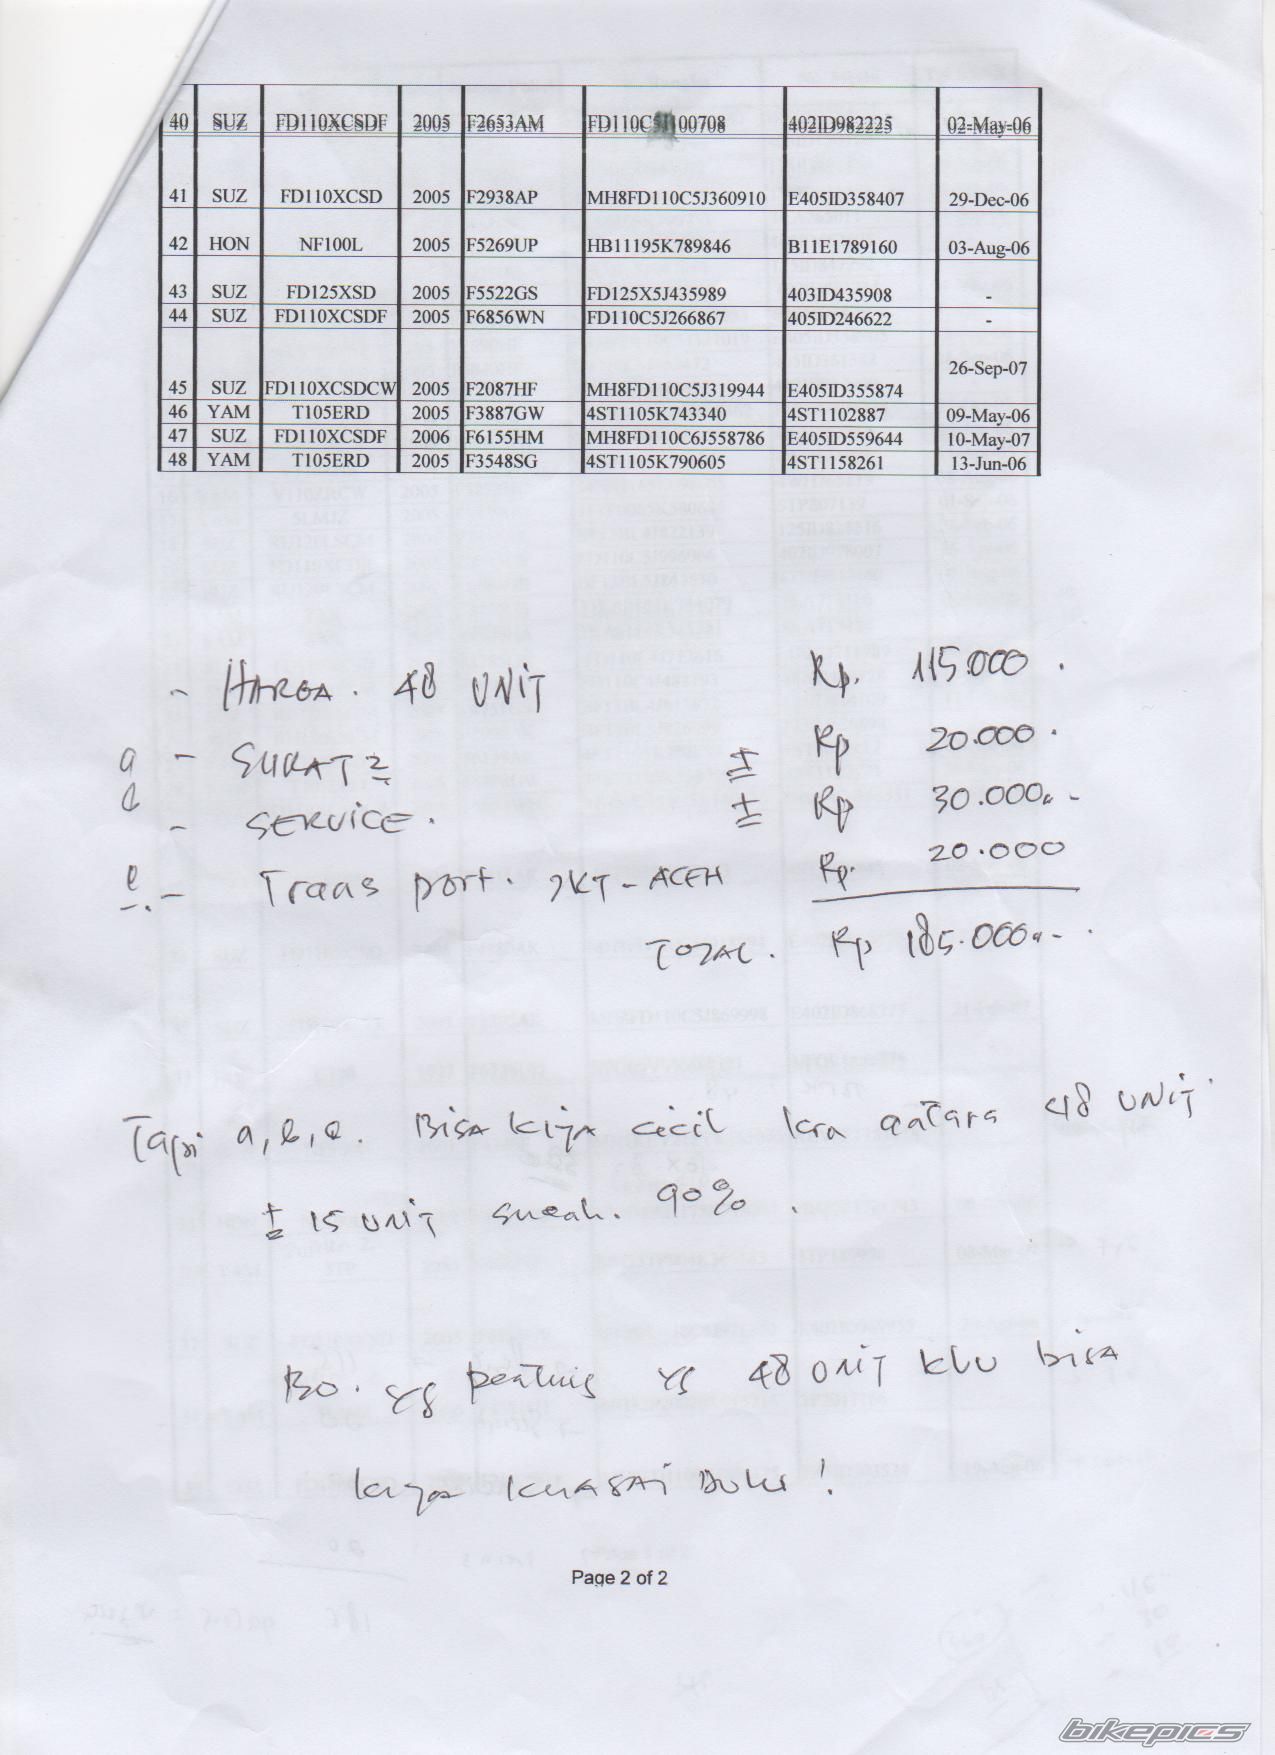 40 SUZ FD110XCSDF 2005 F2653AM 402ID982225 02-May-06
41 SUZ FD110XCSD 2005 F2938AP MH8FD110C5J360910 E405ID358407 29-Dec-06
42 HON NF100L 2005 F5269UP HB11195K789846 B11E1789160 03-Aug-06
43 SUZ FD125XSD 2005 F5522GS FD125X5J435989 403ID435908 -
44 SUZ FD110XCSDF 2005 F6856WN FD110C5J266867 405ID246622 -
45 SUZ FD110XCSDCW 2005 F2087HF MH8FD110C5J319944 E405ID355874 26-Sep-07
46 YAM T105ERD 2005 F3887GW 4ST1105K743340 4ST1102887 09-May-06
47 SUZ FD110XCSDF 2006 F6155HM MH8FD110C6J558786 E405ID559644 10-May-07
48 YAM T105ERD 2005 F3548SG 4ST1105K790605 4ST1158261 13-Jun-06
- HARGA. 48 UNIT Rp. 115.000.
a - SURAT2 ± Rp 20.000.
- SERVICE. ± Rp 30.000,-
- Transport. JKT - ACEH Rp. 20.000
TOTAL. Rp 185.000,-.
Tapi Bisa kita cicil kra antara 48 UNIT.
± 15 UNIT sudah. 90%.
Bo. yg penting yg 48 UNIT klu bisa
kita kuasai Dulu!
Page 2 of 2
bikepics